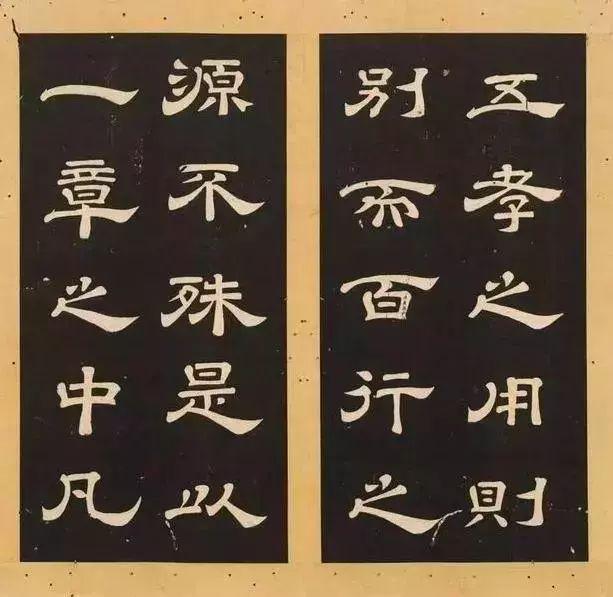 五孝之用則
别而百行之
源不殊是以
一章之中凡